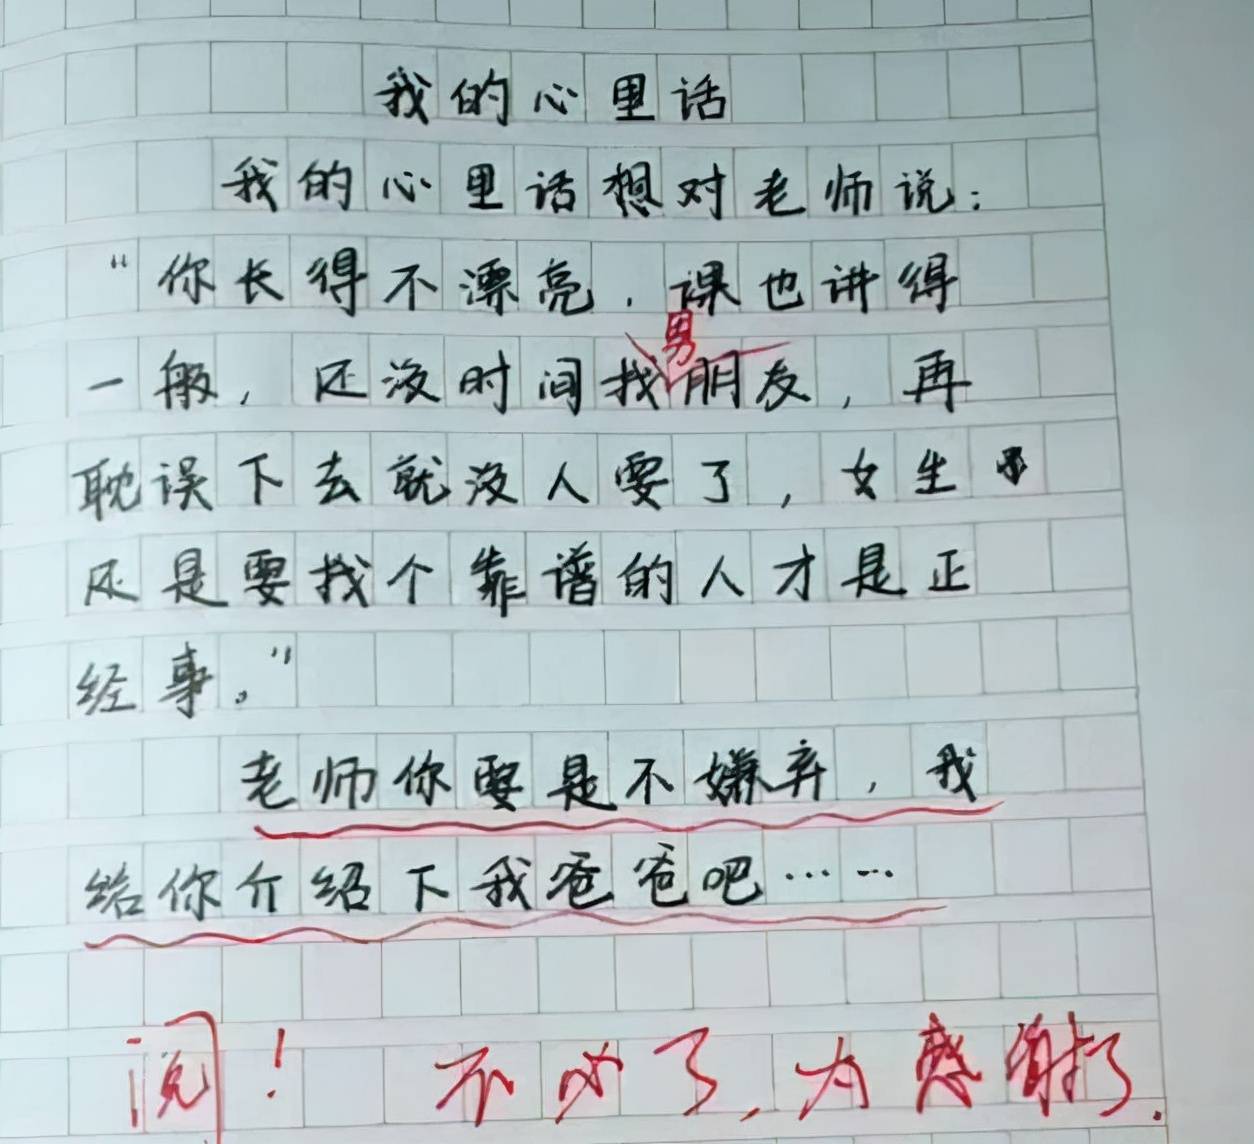 我的心里话
我的心里话想对老师说：
“你长得不漂亮，课也讲得
男
一般，还没时间找朋友，再
耽误下去就没人要了，女生
还是要找个靠谱的人才是正
经事。”
老师你要是不嫌弃，我
给你介绍下我爸爸吧……
阅！ 不必了，大感谢了.